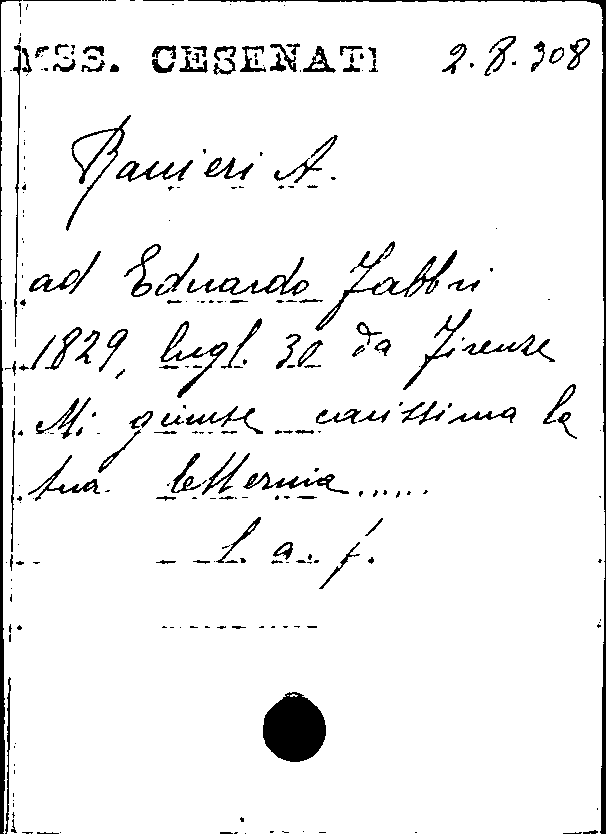 MSS. CESENATI 2.8.308
Ranieri A.
ad Eduardo Fabbri
1829, lugl. 30 da Firenze
Mi giunse carissima la
tua letterina......
l. a. f.